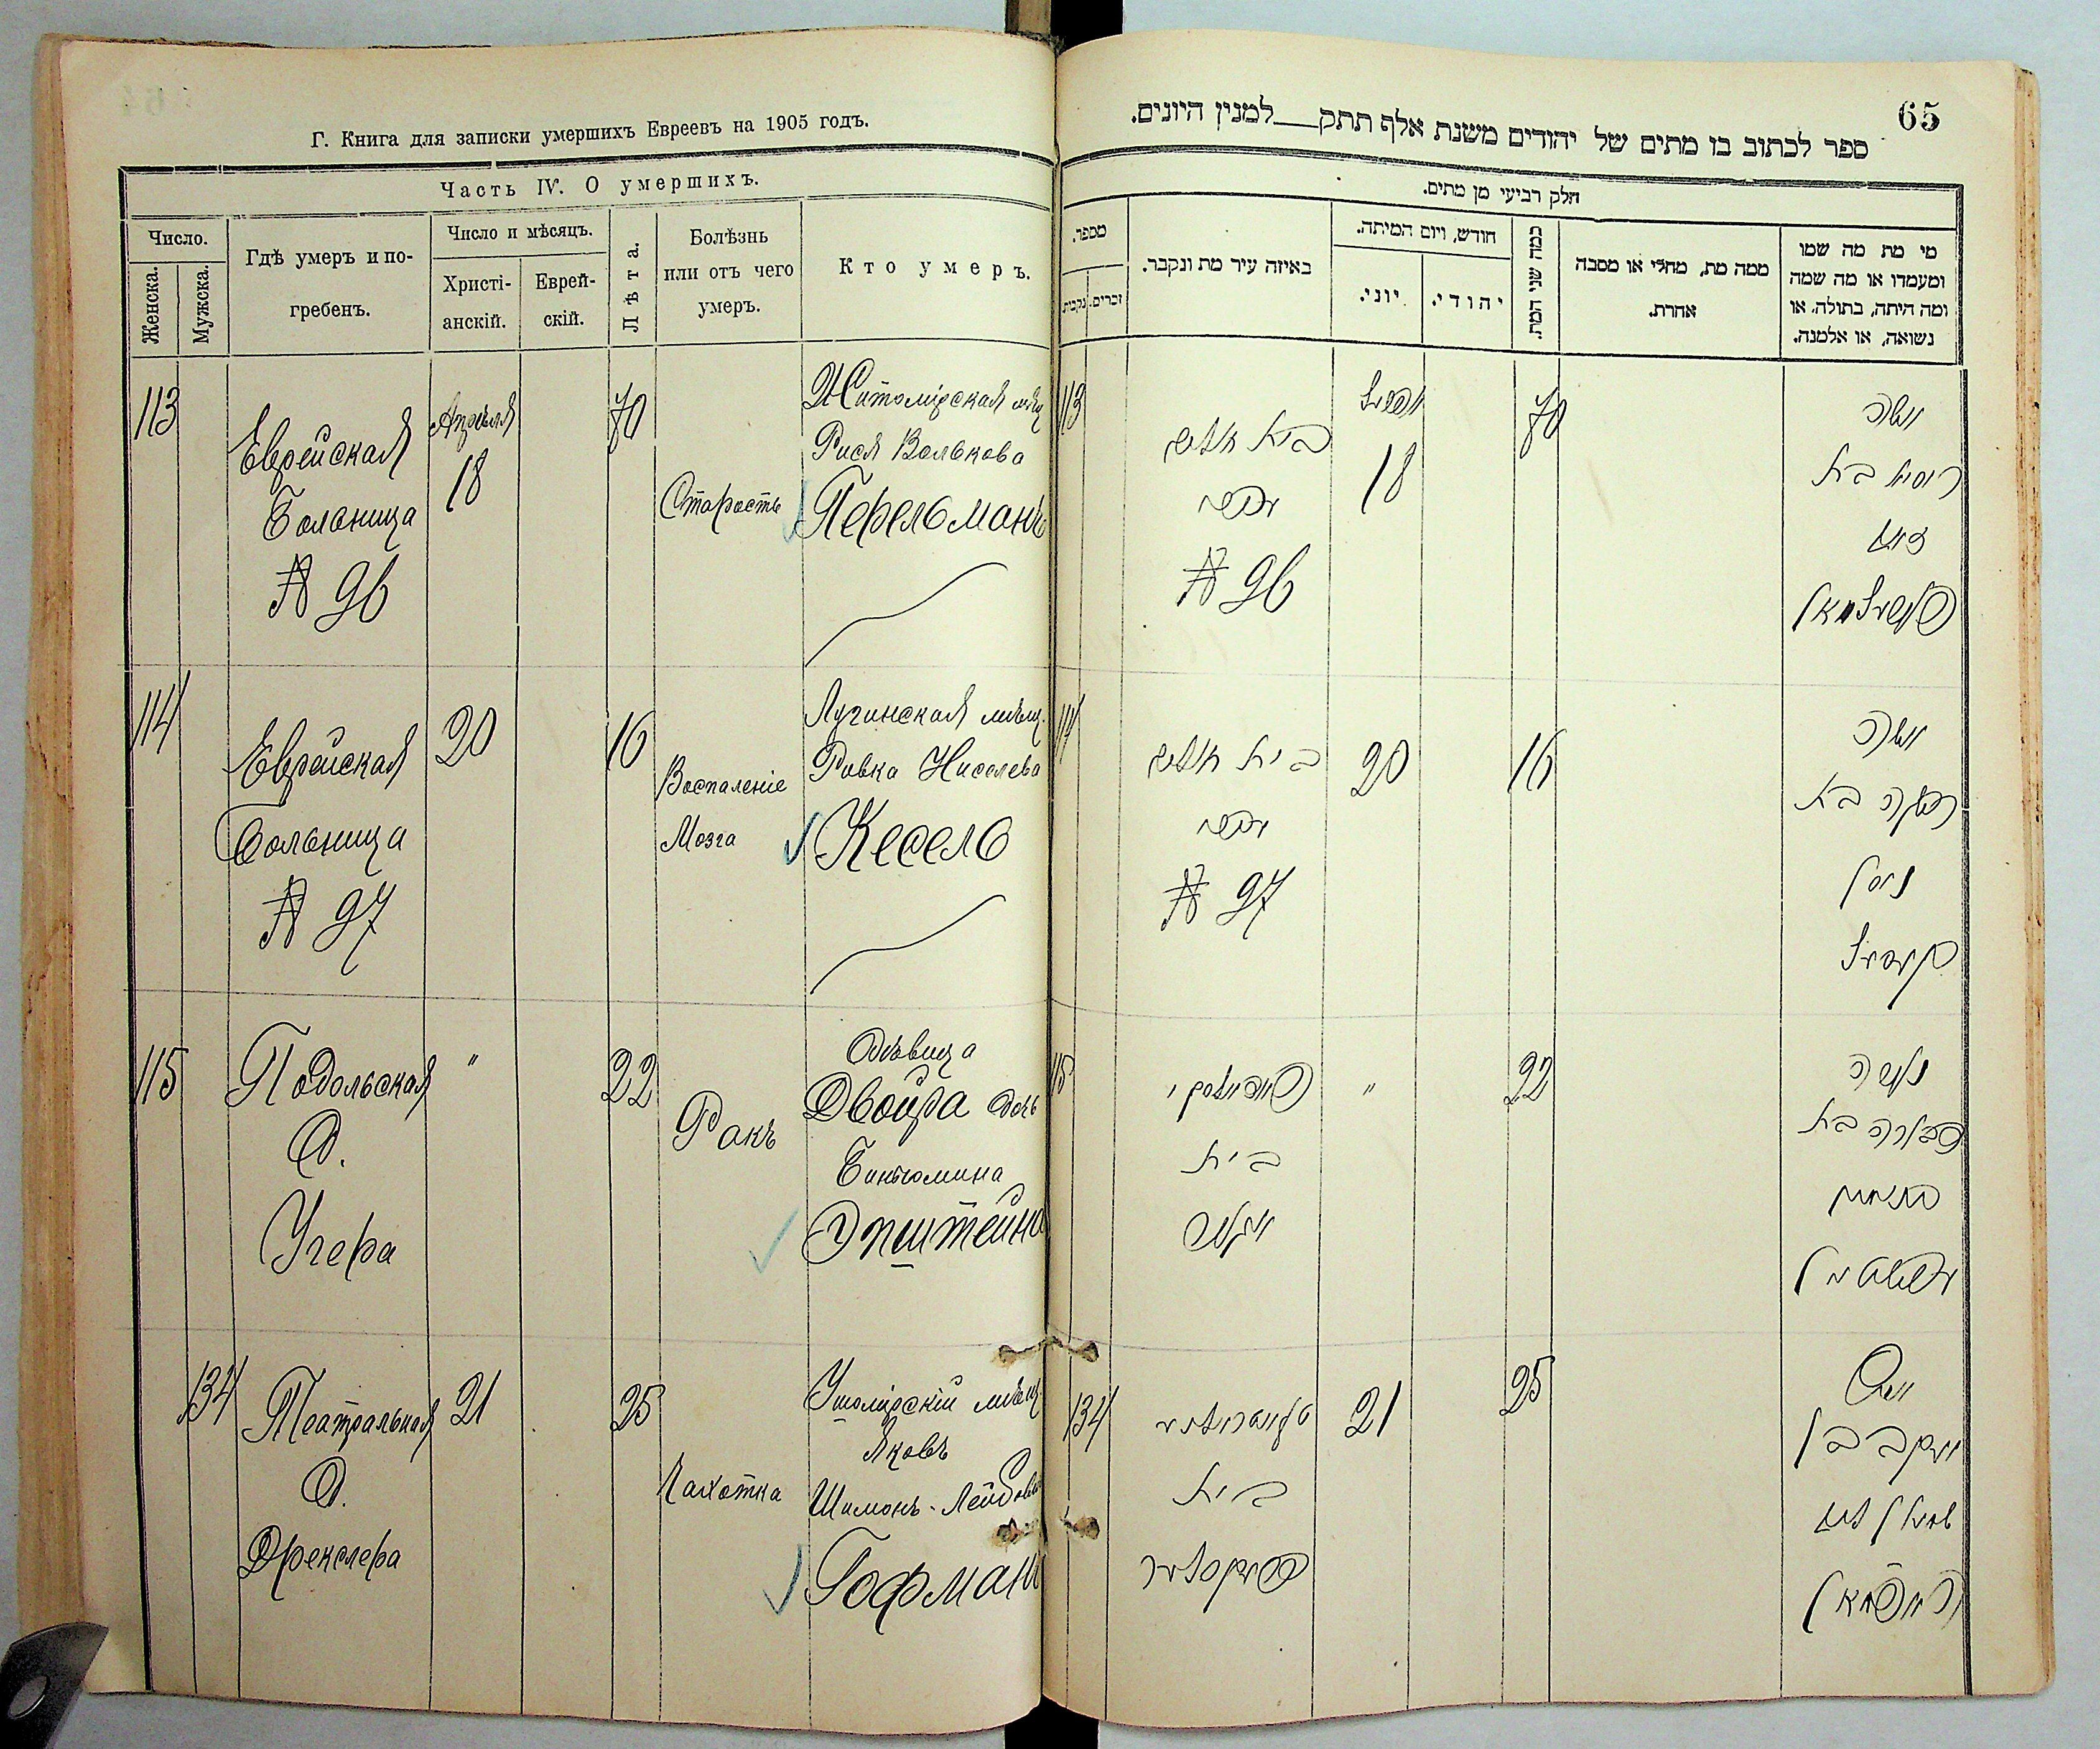 Г. Книга для записки умершихъ Евреевъ на 1905 годъ.
Часть IV. О умершихъ.
Число.
Женска.
Мужска.
Гдѣ умеръ и по-
гребенъ.
Число и мѣсяцъ.
Христі-
анскій.
Еврей-
скій.
Лѣта.
Болѣзнь
или отъ чего
умеръ.
Кто умеръ.
113
Еврейская
Больница
№ 96
Апрѣля
18
70
Старость
Житомірская мѣщ
Рися Волькова
Перельманъ
114
Еврейская
Больница
№ 97
20
16
Воспаленіе
Мозга
Лугинская мѣщ.
Ривка Нисслева
Кесель
115
Подольская
д.
Угера
"
22
Ракъ
Дѣвица
Двойра дочь
Биньюмина
Эпштейнъ
134
Театральная
д.
Дрекслера
21
25
Чахотка
Ушомірскій мѣщ.
Яковъ
Шимонъ-Лейбовъ
Гофманъ
65
ספר לכתוב בו מתים של יהודים משנת אלף תתק למנין היונים.
חלק רביעי מן מתים.
מספר.
נקבות
זכרים.
באיזה עיר מת ונקבר.
חודש, ויום המיתה.
יוני.
יהודי.
כמה שני המת.
ממה מת, מחלי או מסבה
אחרת.
מי מת מה שמו
ומעמדו או מה שמה
ומה היתה, בתולה, או
נשואה, או אלמנה.
113
בית
№ 96
18
70
אשה
בת
פערלמאן
114
בית
№ 97
20
16
אשה
רבקה בת
ניסן
115
בית
"
22
בת
בנימין
134
בית
21
25
איש
יעקב בן
שמעון לייב
האפמאן